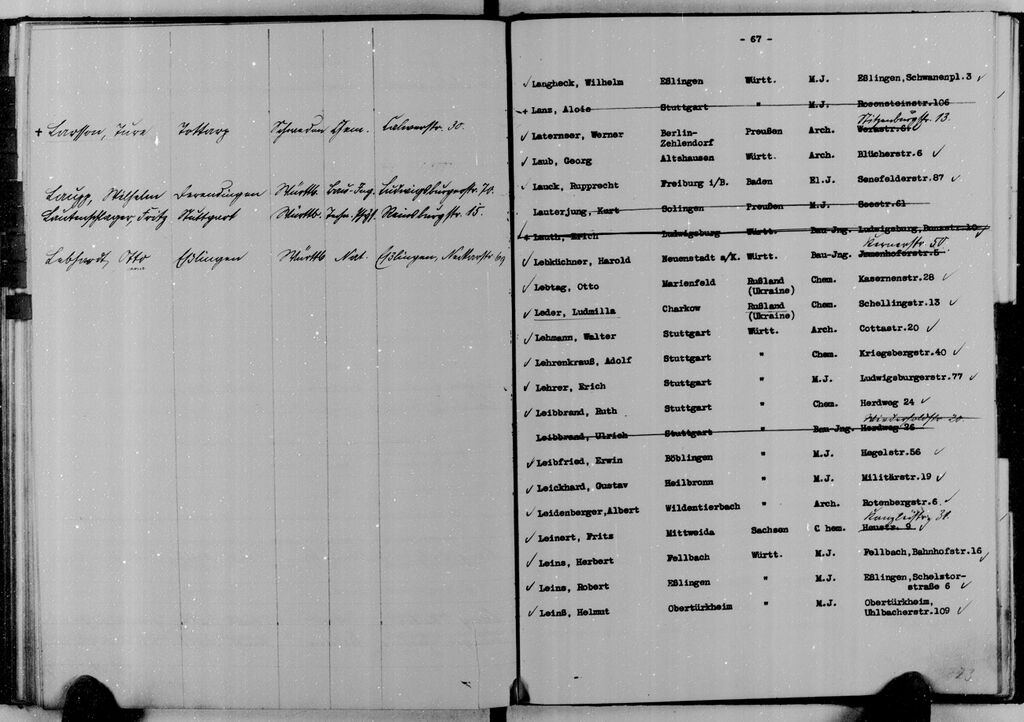 + Larsson, Ture Tottarp Schweden Chem. Calwerstr. 30.
Laupp, Wilhelm Derendingen Württb. Bau-Ing. Ludwigsburgerstr. 70.
Lautenschlager, Fritz Stuttgart Württb. Reinsburgstr. 15.
Lebhardt, Otto Eßlingen Württb. Nat. Eßlingen, Neckarstr.
- 67 -
✓ Langheck, Wilhelm Eßlingen Württ. M.J. Eßlingen, Schwanenpl.3 ✓
+ Lanz, Alois Stuttgart " M.J. Rosensteinstr.106
Spitzenburgstr. 13.
✓ Laternser, Werner Berlin- Preußen Arch. Werastr.61
Zehlendorf
✓ Laub, Georg Altshausen Württ. Arch. Blücherstr.6 ✓
✓ Lauck, Rupprecht Freiburg i/B. Baden El.J. Senefelderstr.87 ✓
Lauterjung, Kurt Solingen Preußen M.J. Seestr.61
+ Lauth, Erich Ludwigsburg Württ. Bau-Jng. Ludwigsburg,
Kernerstr. 50.
✓ Lebküchner, Harold Neuenstadt a/K. Württ. Bau-Jng. Jmmenhoferstr.5
✓ Lebtag, Otto Marienfeld Rußland Chem. Kasernenstr.28 ✓
(Ukraine)
✓ Leder, Ludmilla Charkow Rußland Chem. Schellingstr.13 ✓
(Ukraine)
✓ Lehmann, Walter Stuttgart Württ. Arch. Cottastr.20 ✓
✓ Lehrenkrauß, Adolf Stuttgart " Chem. Kriegsbergstr.40 ✓
✓ Lehrer, Erich Stuttgart " M.J. Ludwigsburgerstr.77 ✓
✓ Leibbrand, Ruth Stuttgart " Chem. Herdweg 24 ✓
Wiederholdstr. 20.
Leibbrand, Ulrich Stuttgart " Bau-Jng. Herdweg 26
✓ Leibfried, Erwin Böblingen " M.J. Hegelstr.56 ✓
✓ Leickhard, Gustav Heilbronn " M.J. Militärstr.19 ✓
✓ Leidenberger,Albert Wildentierbach " Arch. Rotenbergstr.6. ✓
Kanzleistr. 30.
✓ Leinert, Fritz Mittweida Sachsen C hem. Heustr. 9 ✓
✓ Leins, Herbert Fellbach Württ. M.J. Fellbach, Bahnhofstr.16 ✓
✓ Leins, Robert Eßlingen " M.J. Eßlingen, Schelztor-
straße 6 ✓
✓ Leinß, Helmut Obertürkheim " M.J. Obertürkheim,
Uhlbacherstr.109 ✓